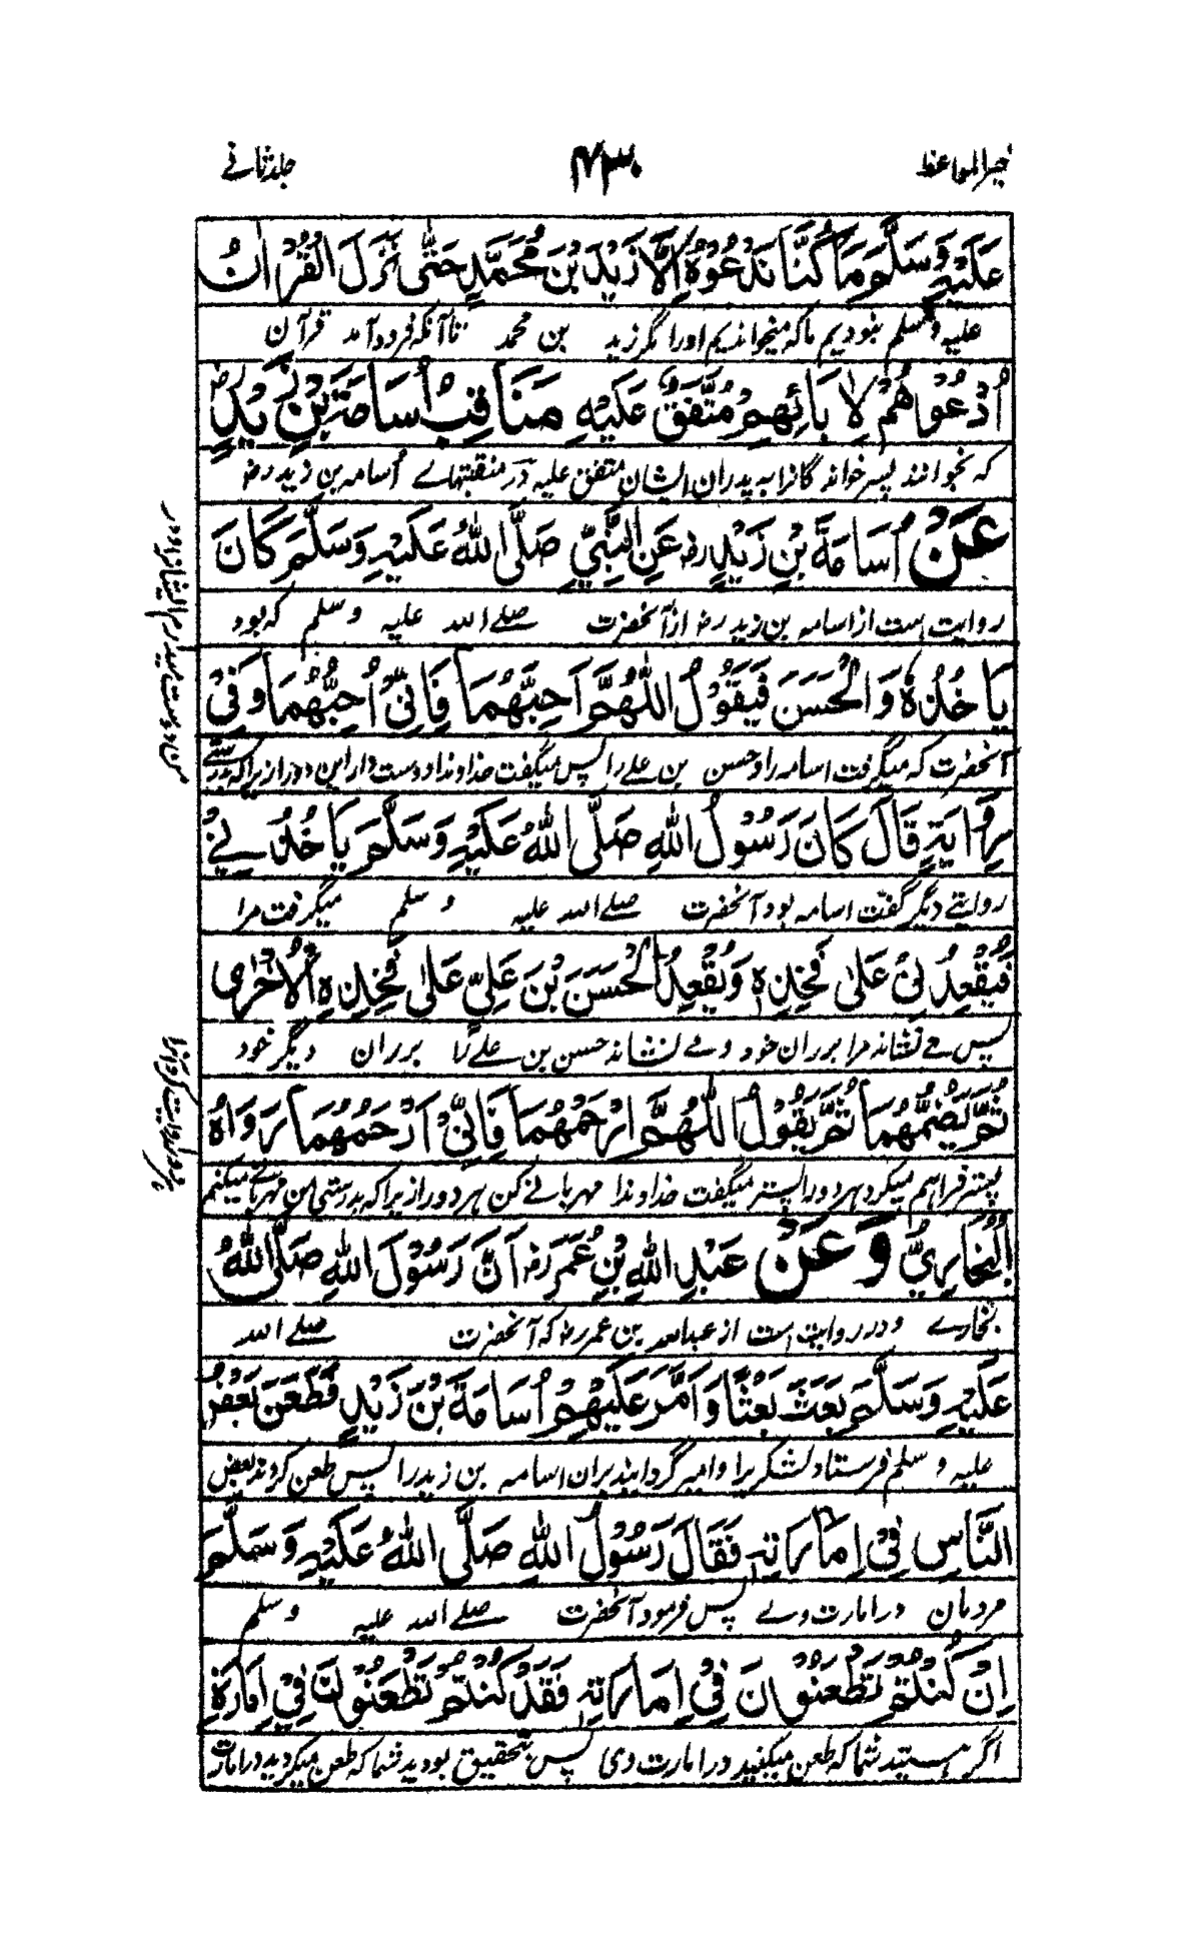 خیر المواعظ ۷۳۰ جلد ثانی
عَلَيْهِ وَسَلَّمَ مَا كُنَّا نَدْعُوْهُ اِلَّا زَيْدَ بْنَ مُحَمَّدٍ حَتّٰى نَزَلَ الْقُرْاٰنُ
علیه وسلم نبودیم ما که میخواندیم اورا مگر زید بن محمد تا آنکه فرود آمد قرآن
اُدْعُوْاهُمْ لِاٰبَائِهِمْ مُتَّفَقٌ عَلَيْهِ مَنَاقِبُ اُسَامَةَ بْنِ زَيْدٍ رض
که بخوانند پسر خواندگانرا به پدران ایشان متفق علیه در منقبتهاے اسامه بن زید رض
عَنْ اُسَامَةَ بْنِ زَيْدٍ رض عَنِ النَّبِيِّ صَلَّى اللهُ عَلَيْهِ وَسَلَّمَ كَانَ
روایت است از اسامه بن زید رض از آنحضرت صلے الله علیه وسلم که بود
يَاخُذُهٗ وَالْحَسَنَ فَيَقُوْلُ اللّٰهُمَّ اَحِبَّهُمَا فَاِنِّيْ اُحِبُّهُمَا وَفِيْ
آنحضرت که میگرفت اسامه را و حسن بن علے را پس میگفت خداوندا دوست دار این دو را زیرا که بدرستے
رِوَايَةٍ قَالَ كَانَ رَسُوْلُ اللهِ صَلَّى اللهُ عَلَيْهِ وَسَلَّمَ يَاخُذُنِيْ
روایتے دیگر گفت اسامه بود آنحضرت صلے الله علیه وسلم میگرفت مرا
فَيُقْعِدُنِيْ عَلٰى فَخِذِهٖ وَيُقْعِدُ الْحَسَنَ بْنَ عَلِيٍّ عَلٰى فَخِذِهِ الْاُخْرٰى
پس مے نشاند مرا بر ران خود و مے نشاند حسن بن علے را بر ران دیگر خود
ثُمَّ يَضُمُّهُمَا ثُمَّ يَقُوْلُ اللّٰهُمَّ ارْحَمْهُمَا فَاِنِّيْ اَرْحَمُهُمَا رَوَاهُ
پستر فراهم میکرد هر دو را پستر میگفت خداوندا مهربانے کن هر دو را زیرا که بدرستی من مهربانے میکنم
الْبُخَارِيُّ وَعَنْ عَبْدِ اللهِ بْنِ عُمَرَ رض اَنَّ رَسُوْلَ اللهِ صَلَّى اللهُ
بخارے و در روایت است از عبدالله بن عمر رض که آنحضرت صلے الله
عَلَيْهِ وَسَلَّمَ بَعَثَ بَعْثًا وَاَمَّرَ عَلَيْهِمْ اُسَامَةَ بْنَ زَيْدٍ فَطَعَنَ بَعْضُ
علیه وسلم فرستاد لشکریرا و امیر گردانید بران اسامه بن زید را پس طعن کردند بعض
النَّاسِ فِيْ اِمَارَتِهٖ فَقَالَ رَسُوْلُ اللهِ صَلَّى اللهُ عَلَيْهِ وَسَلَّمَ
مردمان در امارت وے پس فرمود آنحضرت صلے الله علیه وسلم
اِنْ كُنْتُمْ تَطْعَنُوْنَ فِيْ اِمَارَتِهٖ فَقَدْ كُنْتُمْ تَطْعَنُوْنَ فِيْ اِمَارَةِ
اگر هستید شما که طعن میکنید در امارت وی پس بتحقیق بودید شما که طعن میکردید در امارت